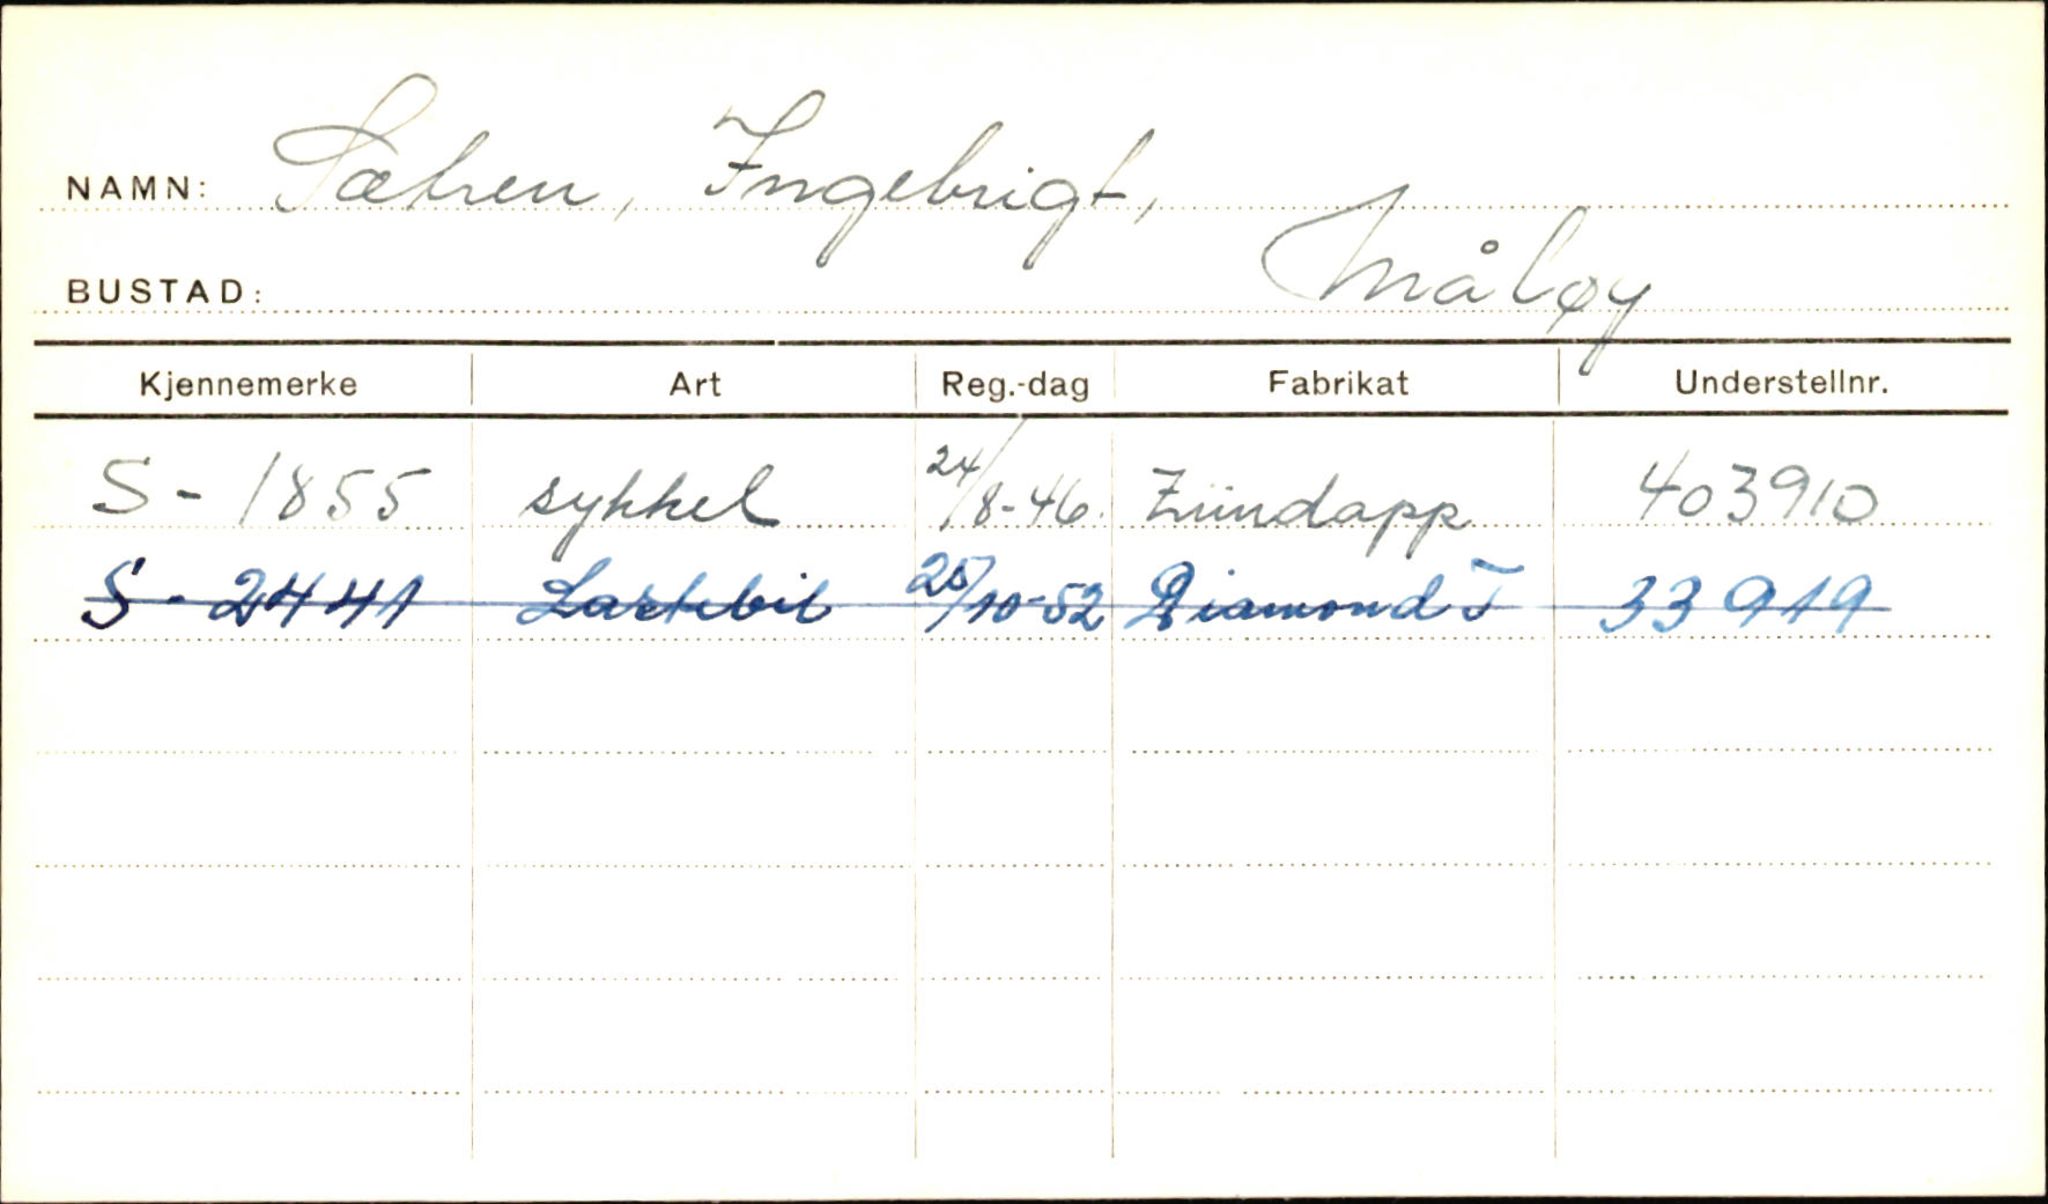 NAMN: Sætren, Ingebrigt,
BUSTAD: Måløy
Kjennemerke Art Reg.-dag Fabrikat Understellnr.
S-1855 sykkel 24/8-46. Zündapp 403910
S-2441 Lastebil 25/10-52 Diamond T 33919